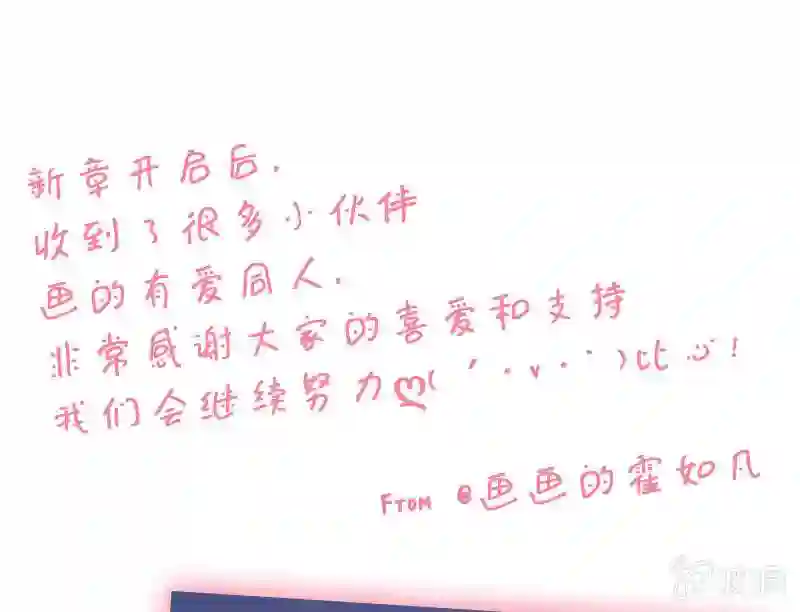 新章开启后.
收到了很多小伙伴
画的有爱同人.
非常感谢大家的喜爱和支持
我们会继续努力ღ( ´･ᴗ･` )比心!
From @画画的霍如凡